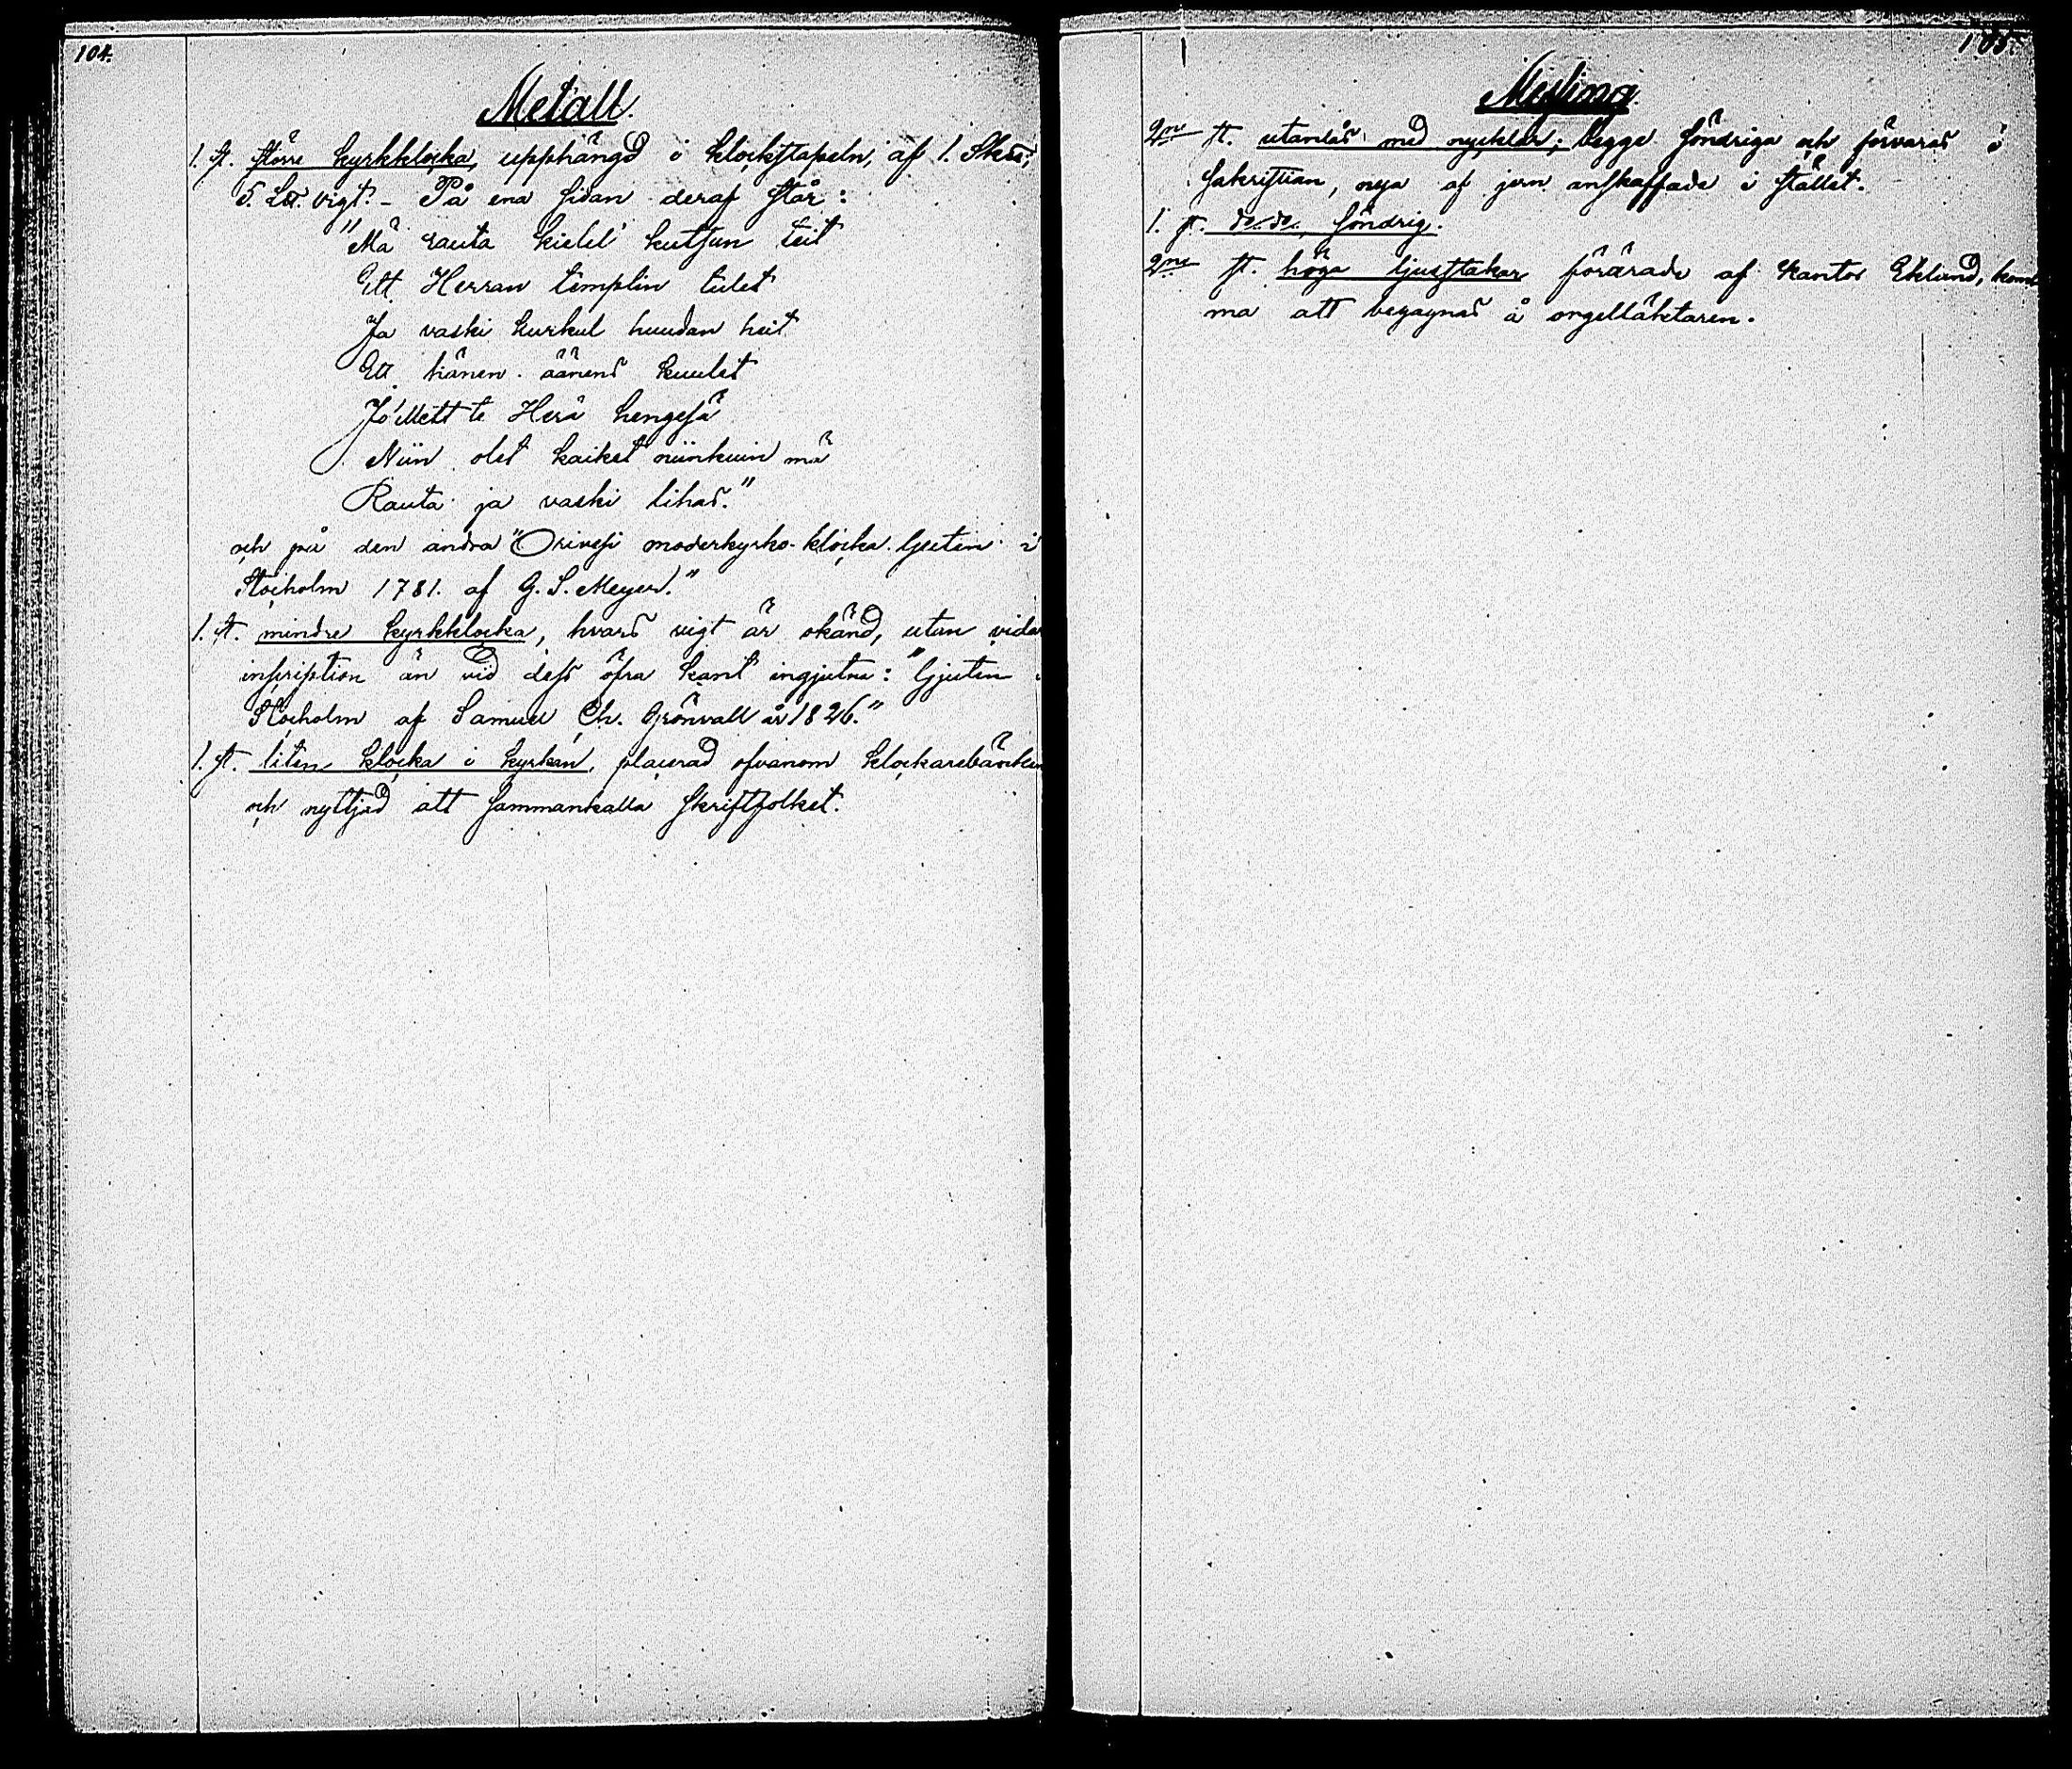 104.
Metall.
1. st. större kyrkklocka, upphängd i klockstapeln, af 1.
5. vigt. - På ena sidan deraf står:
"Mä rauta kielel' kutsun teit
Ett Herran templin tulet
Ja vaski kurkul huudan heit
Ett hänen äänens kuulet
Jo'Mett te Herä hengesä
Niin olet kaiket niinkuin mä
Rauta ja vaski lihas."
och på den andra "Orivesi moderkyrko-klocka. Gjuten i
Stocholm 1781. af G. S. Meyer."
1. st. mindre kyrkklocka, hvars vigt är okänd, utan vidare
inscription än vid dess öfra kant ingjutna: "Gjuten i
Stocholm af Samuel Ch. Grönvall år 1826."
1. st. liten klocka i kyrkan, placerad ofvanom klockarebänken
och nyttjad att sammankalla skriftfolket.
105.
Messing
2ne st. utanlås med nycklar; begge söndriga och förvaras i
sakristian, nya af jern anskaffade i stället.
1. st. do. do. söndrig.
2ne st. höga ljusstakar förärade af Kantor Eklund, kom-
ma att begagnas å orgelläktaren.